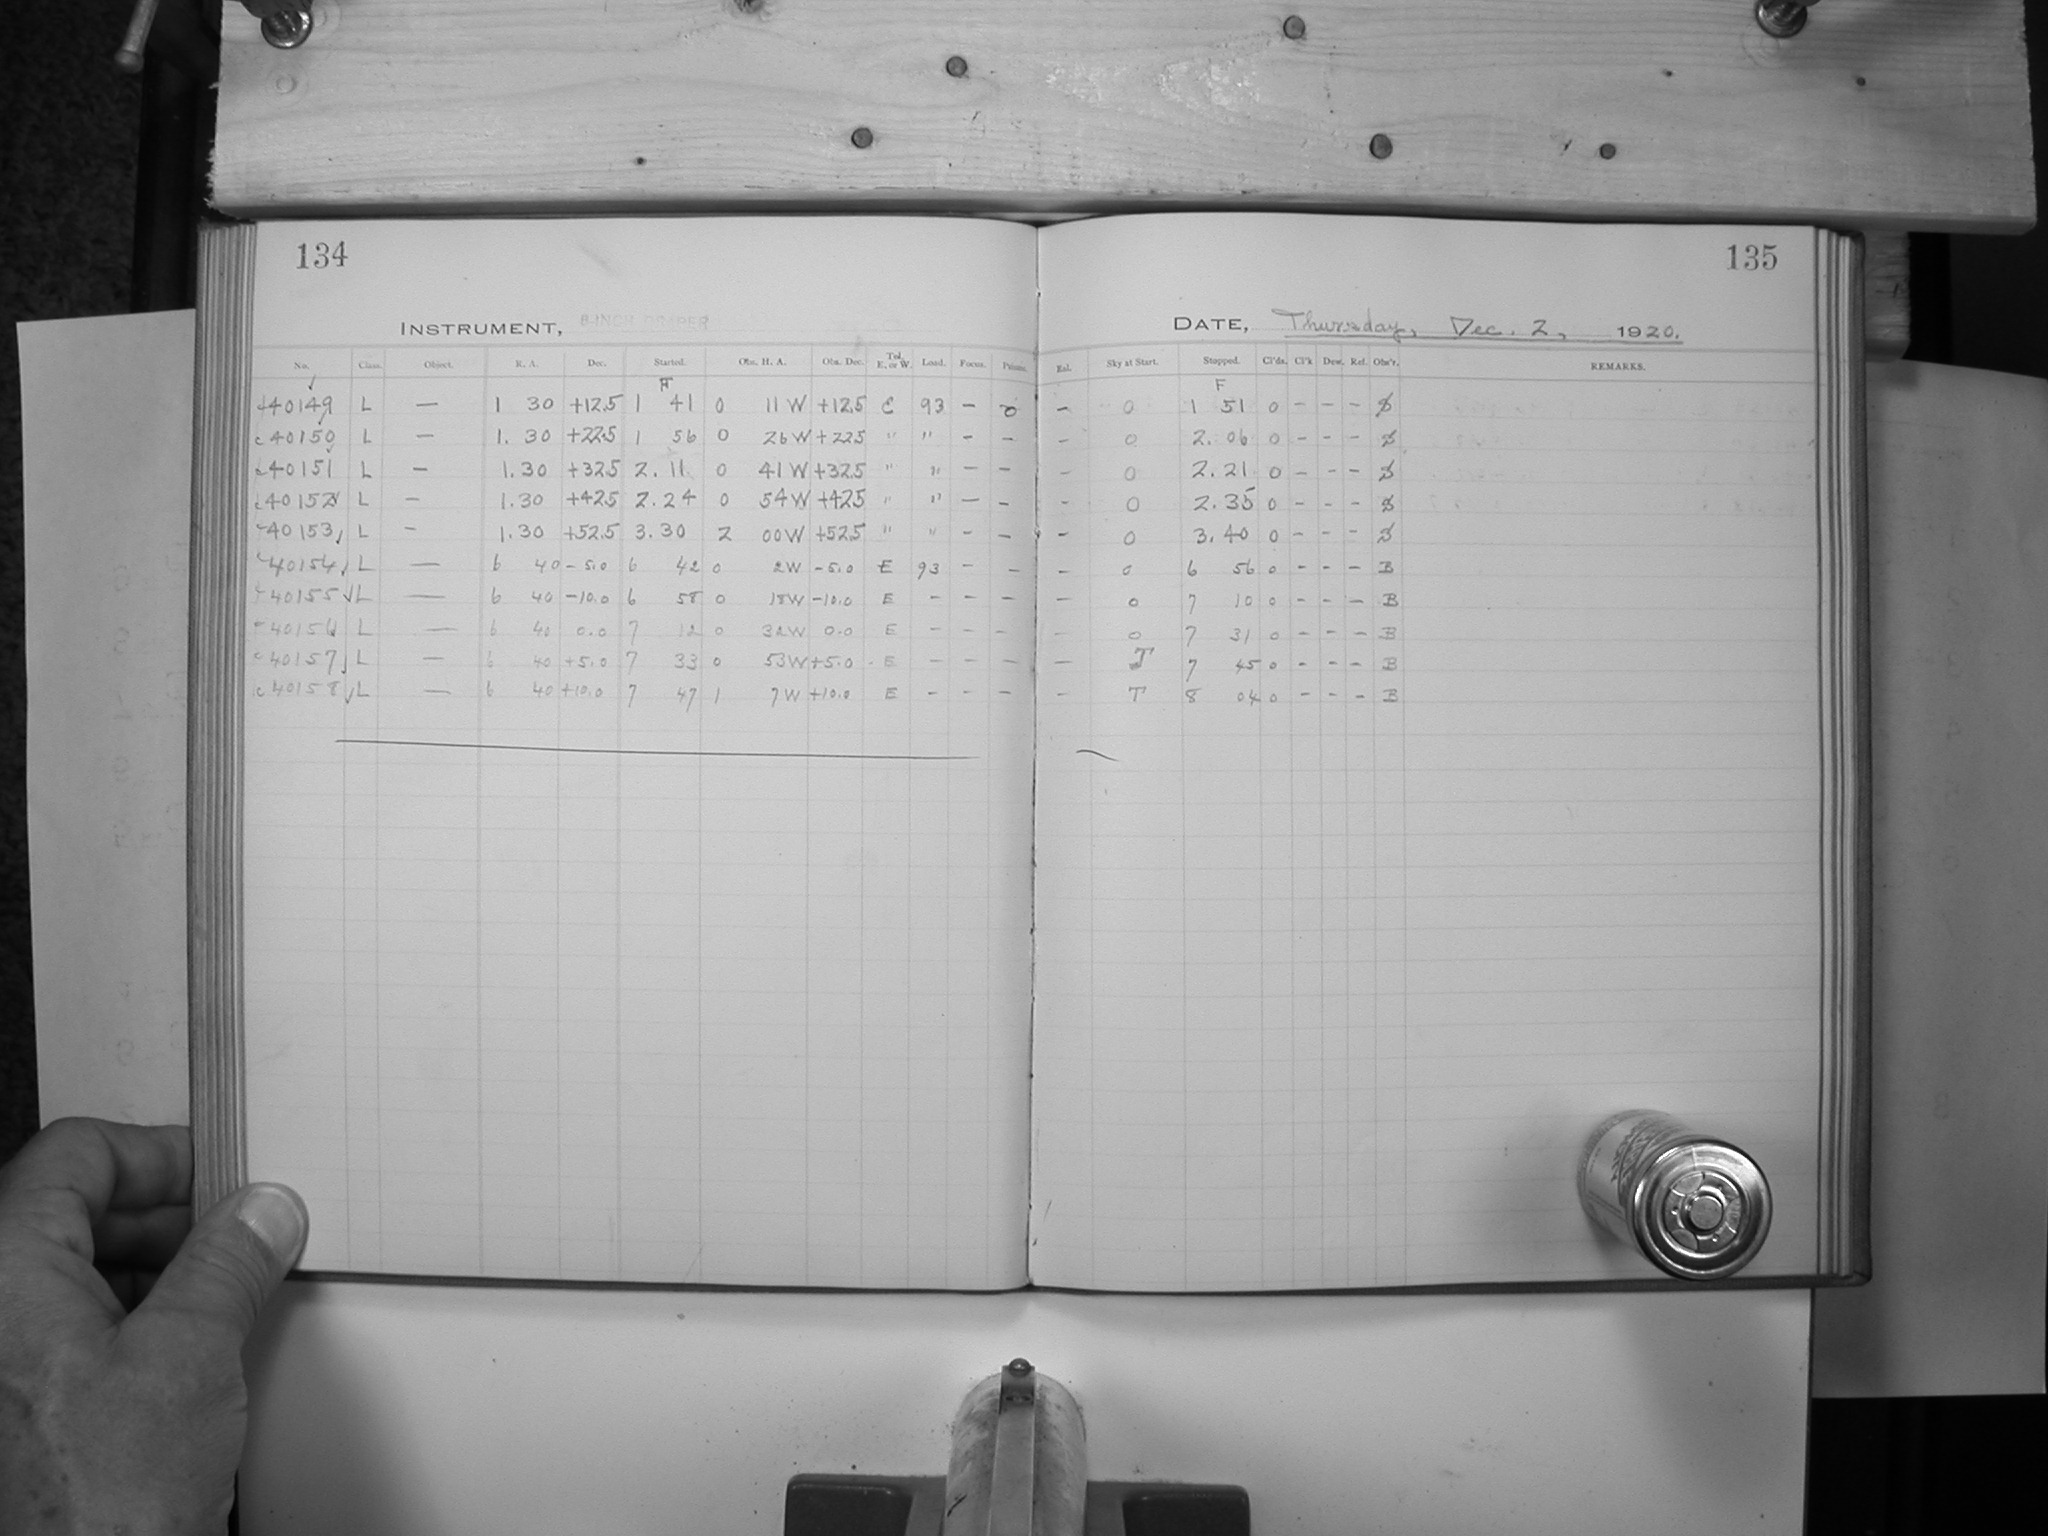 134
135
INSTRUMENT, 8-INCH DRAPER
DATE, Thursday, Dec. 2, 1920.
No. Class. Object. R. A. Dec. Started. Obs. H. A. Obs. Dec. Tel. E. or W. Load. Focus. Prisms. Esl. Sky at Start. Stopped. Cl'ds. Cl'k Dew. Ref. Obs'r. REMARKS.
F F
40149 L — 1 30 +12.5 1 41 0 11 W +12.5 E 93 - 0 - 0 1 51 0 - - - S
c 40150 L — 1. 30 +22.5 1 56 0 26 W +22.5 " " - - - 0 2. 06 0 - - - S
c 40151 L — 1.30 +32.5 2. 11 0 41 W +32.5 " " - - - 0 2. 21 0 - - - S
c 40152 L - 1.30 +42.5 2. 24 0 54 W +42.5 " " - - - 0 2. 35 0 - - - S
c 40153 L - 1.30 +52.5 3. 30 2 00 W +52.5 " " - - - 0 3. 40 0 - - - S
c 40154 L — 6 40 -5.0 6 42 0 2 W -5.0 E 93 - - - 0 6 56 0 - - - B
c 40155 L — 6 40 -10.0 6 58 0 18 W -10.0 E - - - - 0 7 10 0 - - - B
c 40156 L — 6 40 0.0 7 12 0 32 W 0.0 E - - - - 0 7 31 0 - - - B
c 40157 L — 6 40 +5.0 7 33 0 53 W +5.0 E - - - - T 7 45 0 - - - B
c 40158 L — 6 40 +10.0 7 47 1 7 W +10.0 E - - - - T 8 04 0 - - - B